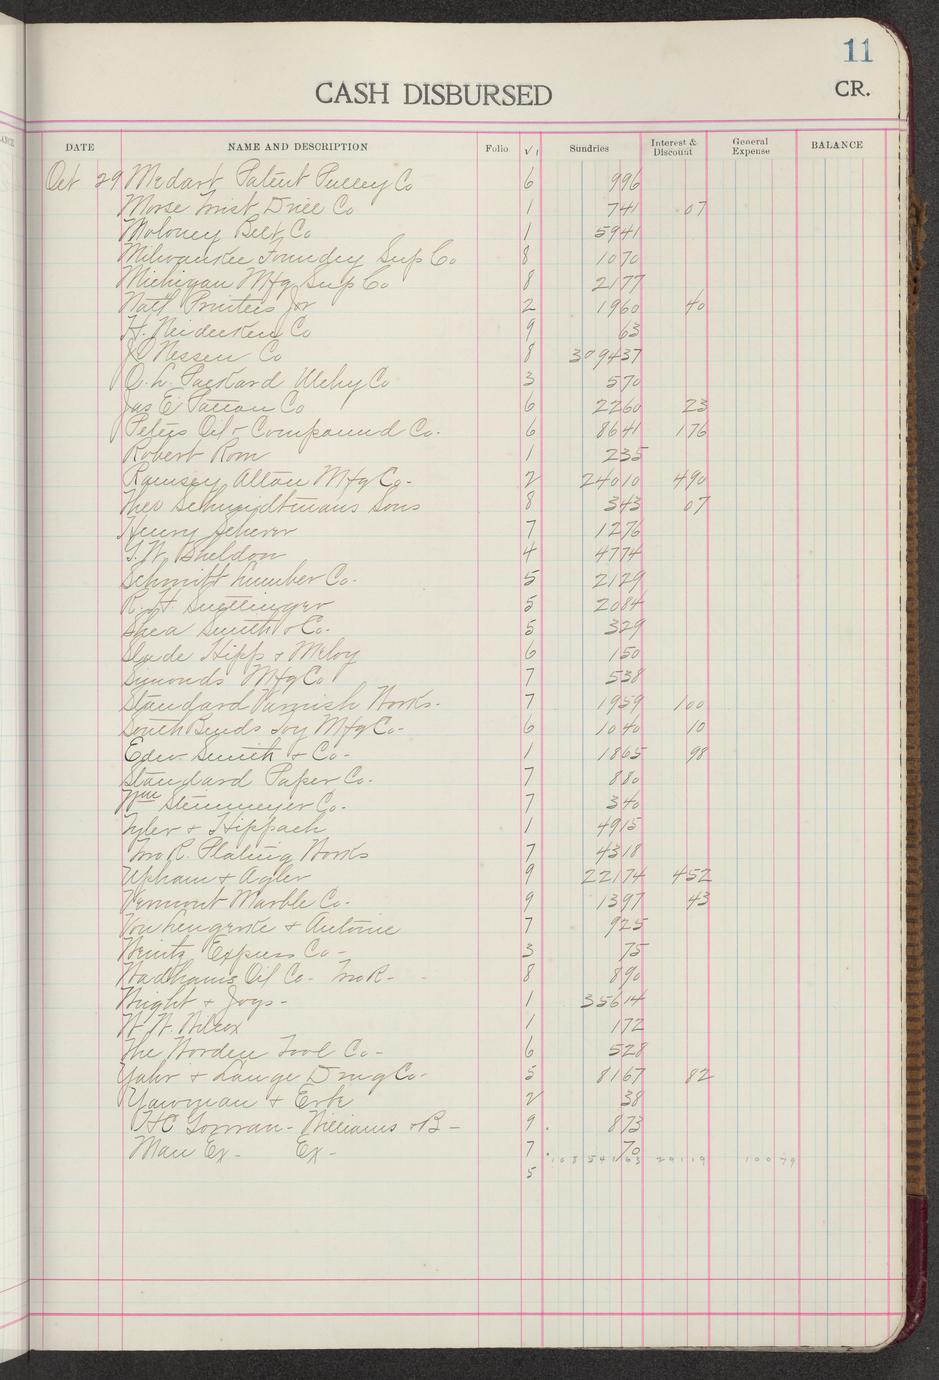 11
CASH DISBURSED
CR.
DATE NAME AND DESCRIPTION Folio V 1 Sundries Interest & Discount General Expense BALANCE
Oct 29 Medart Patent Pulley Co 6 996
Morse Twist Drill Co 1 741 07
Moloney Belt Co 1 5941
Milwaukee Foundry Sup Co 8 1070
Michigan Mfg Sup Co 8 2177
Natl Printers Jr 2 1960 40
H. Neidecken Co 9 63
J O Nessen Co 8 309437
O. L. Packard Mchy Co 3 570
Jas E Patton Co 6 2260 23
Peters Oil & Compound Co. 6 8641 176
Robert Rom 1 235
Ramsey Alton Mfg Co - 2 24010 490
Theo Schmidtmans Sons 8 343 07
Henry Scherer 7 1276
G. W. Sheldon 4 4774
Schmitt Lumber Co - 5 2129
R. H. 5 2084
Shea Smith & Co - 5 329
Slade Hipp & Meloy 6 150
Simonds Mfg Co 7 538
Standard Varnish Works - 7 1959 100
South Bends Toy Mfg Co - 6 1040 10
Edw Smith & Co - 1 1865 98
Standard Paper Co - 7 880
Wm Steinmeyer Co - 7 340
Tyler & Hippach 1 4915
Two R. Plating Works 7 4318
Upham & Agler 9 22174 452
Vermont Marble Co - 9 1397 43
Von Lengerke & Antoine 7 925
Wentz Express Co - 3 75
Wadhams Oil Co - Two R - - 8 890
Wright & Joys - 1 35614
W. W. Wilcox 1 172
The Worden Tool Co - 6 528
Yahr & Lange Drug Co - 5 8167 82
Yawman & Erbe 2 38
HC Gorman - Williams & B - 9 . 873
Man Ex - Ex - 7 . 70
5 10854163 29119 10079